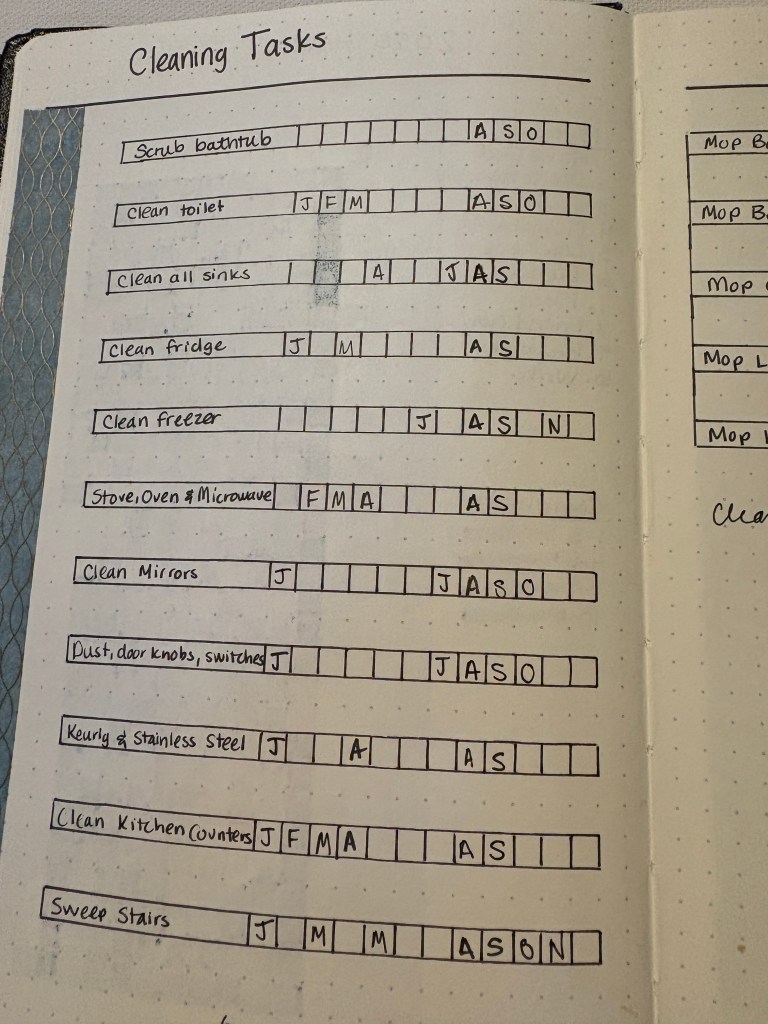 Cleaning Tasks
Scrub bathtub A S O
Clean toilet J F M A S O
Clean all sinks A J A S
Clean fridge J M A S
Clean freezer J A S N
Stove, Oven & Microwave F M A A S
Clean Mirrors J J A S O
Dust, door knobs, switches J J A S O
Keurig & Stainless Steel J A A S
Clean Kitchen Counters J F M A A S
Sweep Stairs J M M A S O N
Mop
Mop
Mop
Mop
Mop